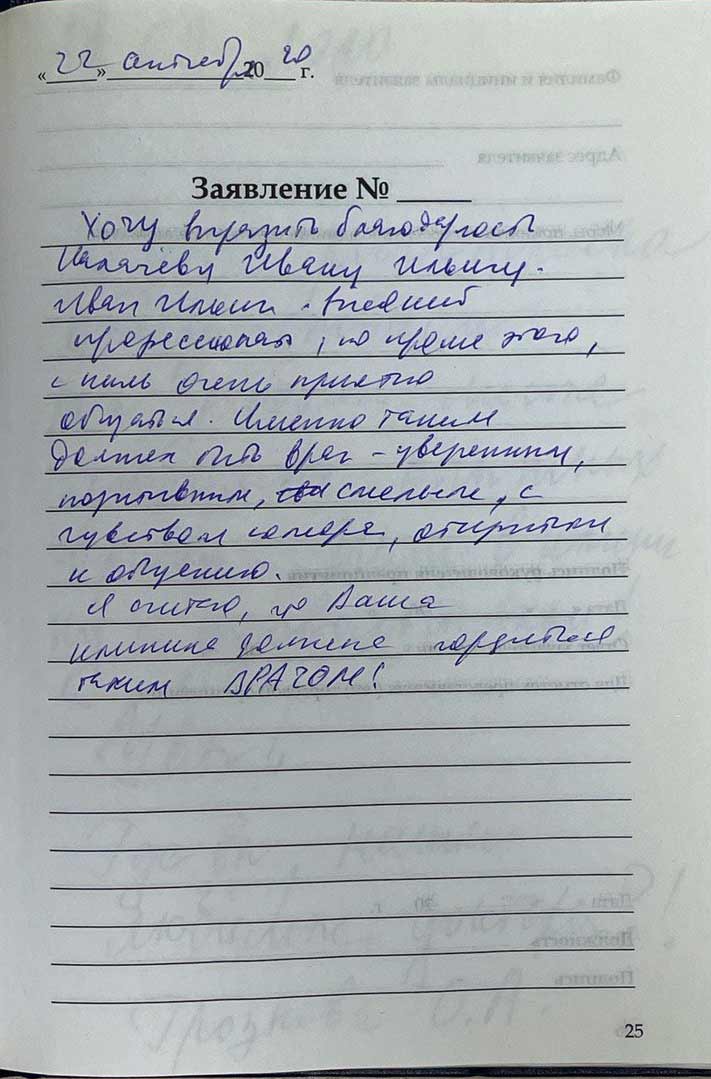 «22» октября 2020 г.
Заявление № ____
Хочу выразить благодарность
Ивану Ильичу.
Иван Ильич -
профессионал, но кроме этого,
с ним очень приятно
общаться. Именно таким
должен быть врач - уверенным,
позитивным, смелым, с
чувством юмора, открытым
к общению.
Я считаю, что Ваша
клиника должна гордиться
таким ВРАЧОМ!
25